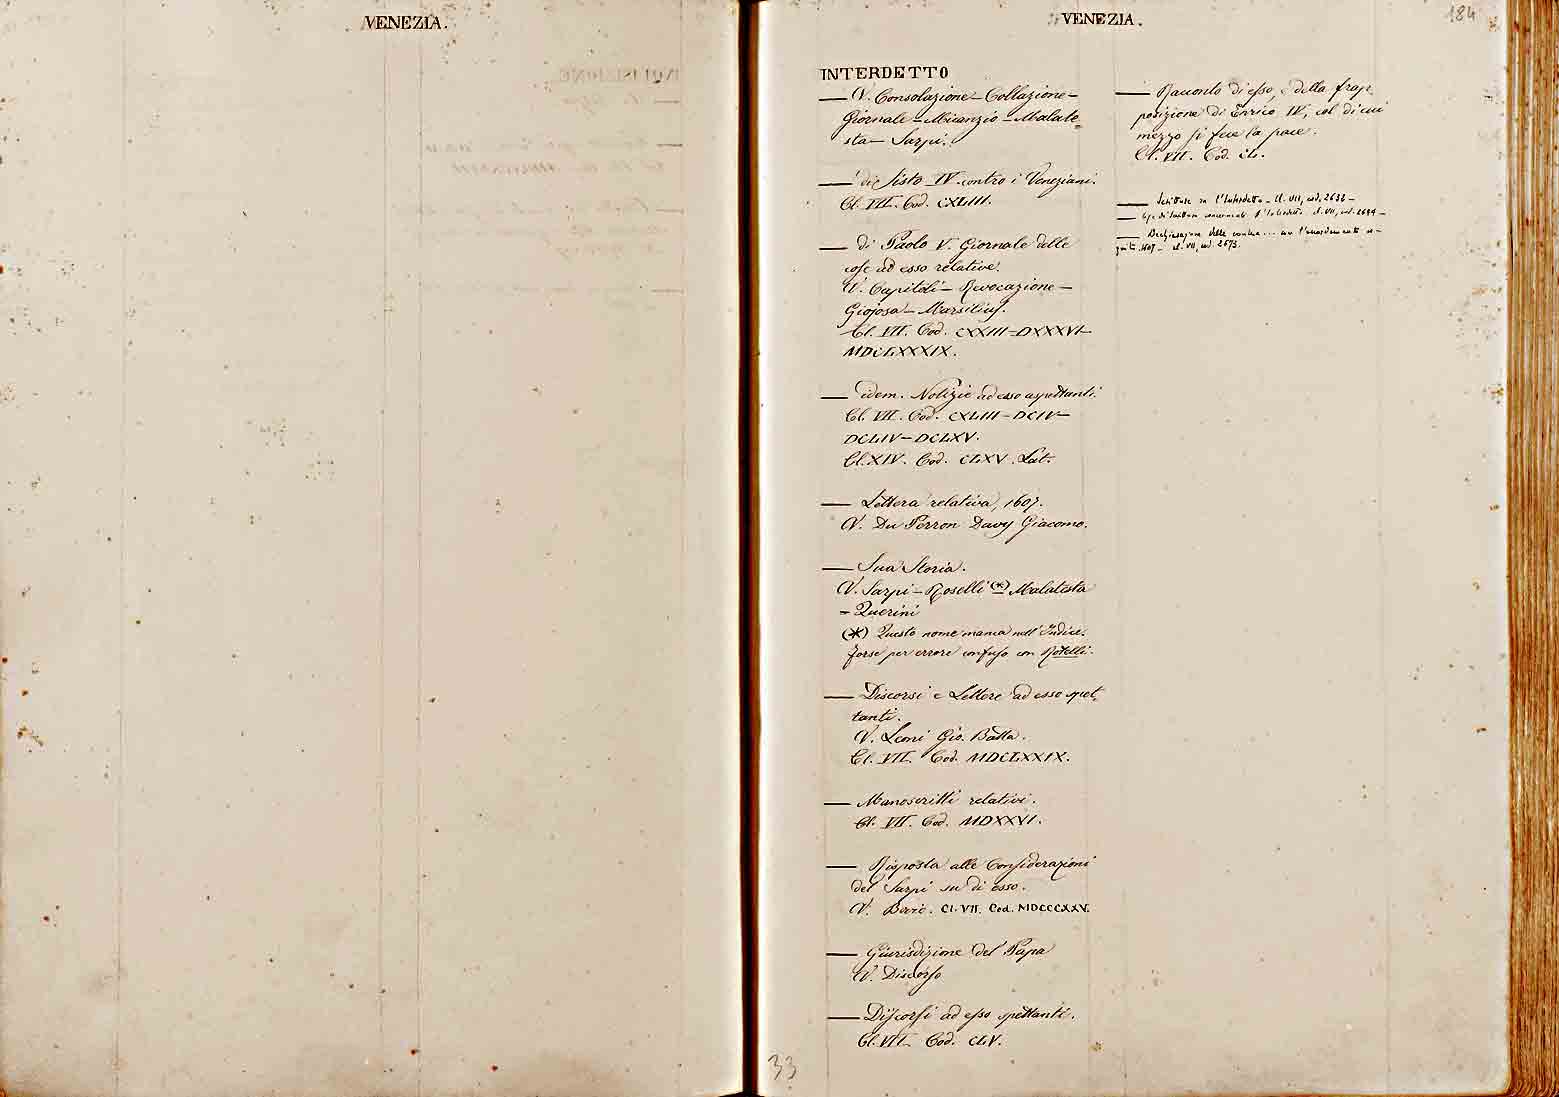 VENEZIA.
VENEZIA.
184
INTERDETTO
— V. Consolazione – Collazione –
Giornale – Micanzio – Malate-
sta – Sarpi.
— di Sisto IV. contro i Veneziani.
Cl. VII. Cod. CXLIII.
— di Paolo V. Giornale delle
cose ad esso relative.
V. Capitoli – Revocazione –
Giojosa – Marsilius.
Cl. VII. Cod. CXXIII – DXXXVI –
MDCLXXXIX.
— idem. Notizie ad esso aspettanti.
Cl. VII. Cod. CXLIII – DCIV –
DCLIV – DCLXV.
Cl. XIV. Cod. CLXV. Lat.
— Lettera relativa, 1607.
V. Du Perron Davy Giacomo.
— Sua Storia.
V. Sarpi – Roselli (*) Malatesta
– Querini
(*) Questo nome manca nell'Indice.
Forse per errore confuso con Rotelli.
— Discorsi e Lettere ad esso spet-
tanti.
V. Leoni Gio. Batta.
Cl. VII. Cod. MDCLXXIX.
— Manoscritti relativi.
Cl. VII. Cod. MDXXVI.
— Risposta alle Considerazioni
del Sarpi su di esso.
V. Bovio. Cl. VII. Cod. MDCCCXXV.
— Giurisdizione del Papa
V. Discorso
— Discorsi ad esso spettanti.
Cl. VII. Cod. CLV.
— Racconto di esso, e della frap-
posizione di Enrico IV, col di cui
mezzo si fece la pace.
Cl. VII. Cod.
— Scritture su l'Interdetto – Cl. VII, cod. 2638 –
— l'Interdetto cl. VII, cod. 2644 –
— Dichiarazione delle
1607 – cl. VII, cod. 2673.
33